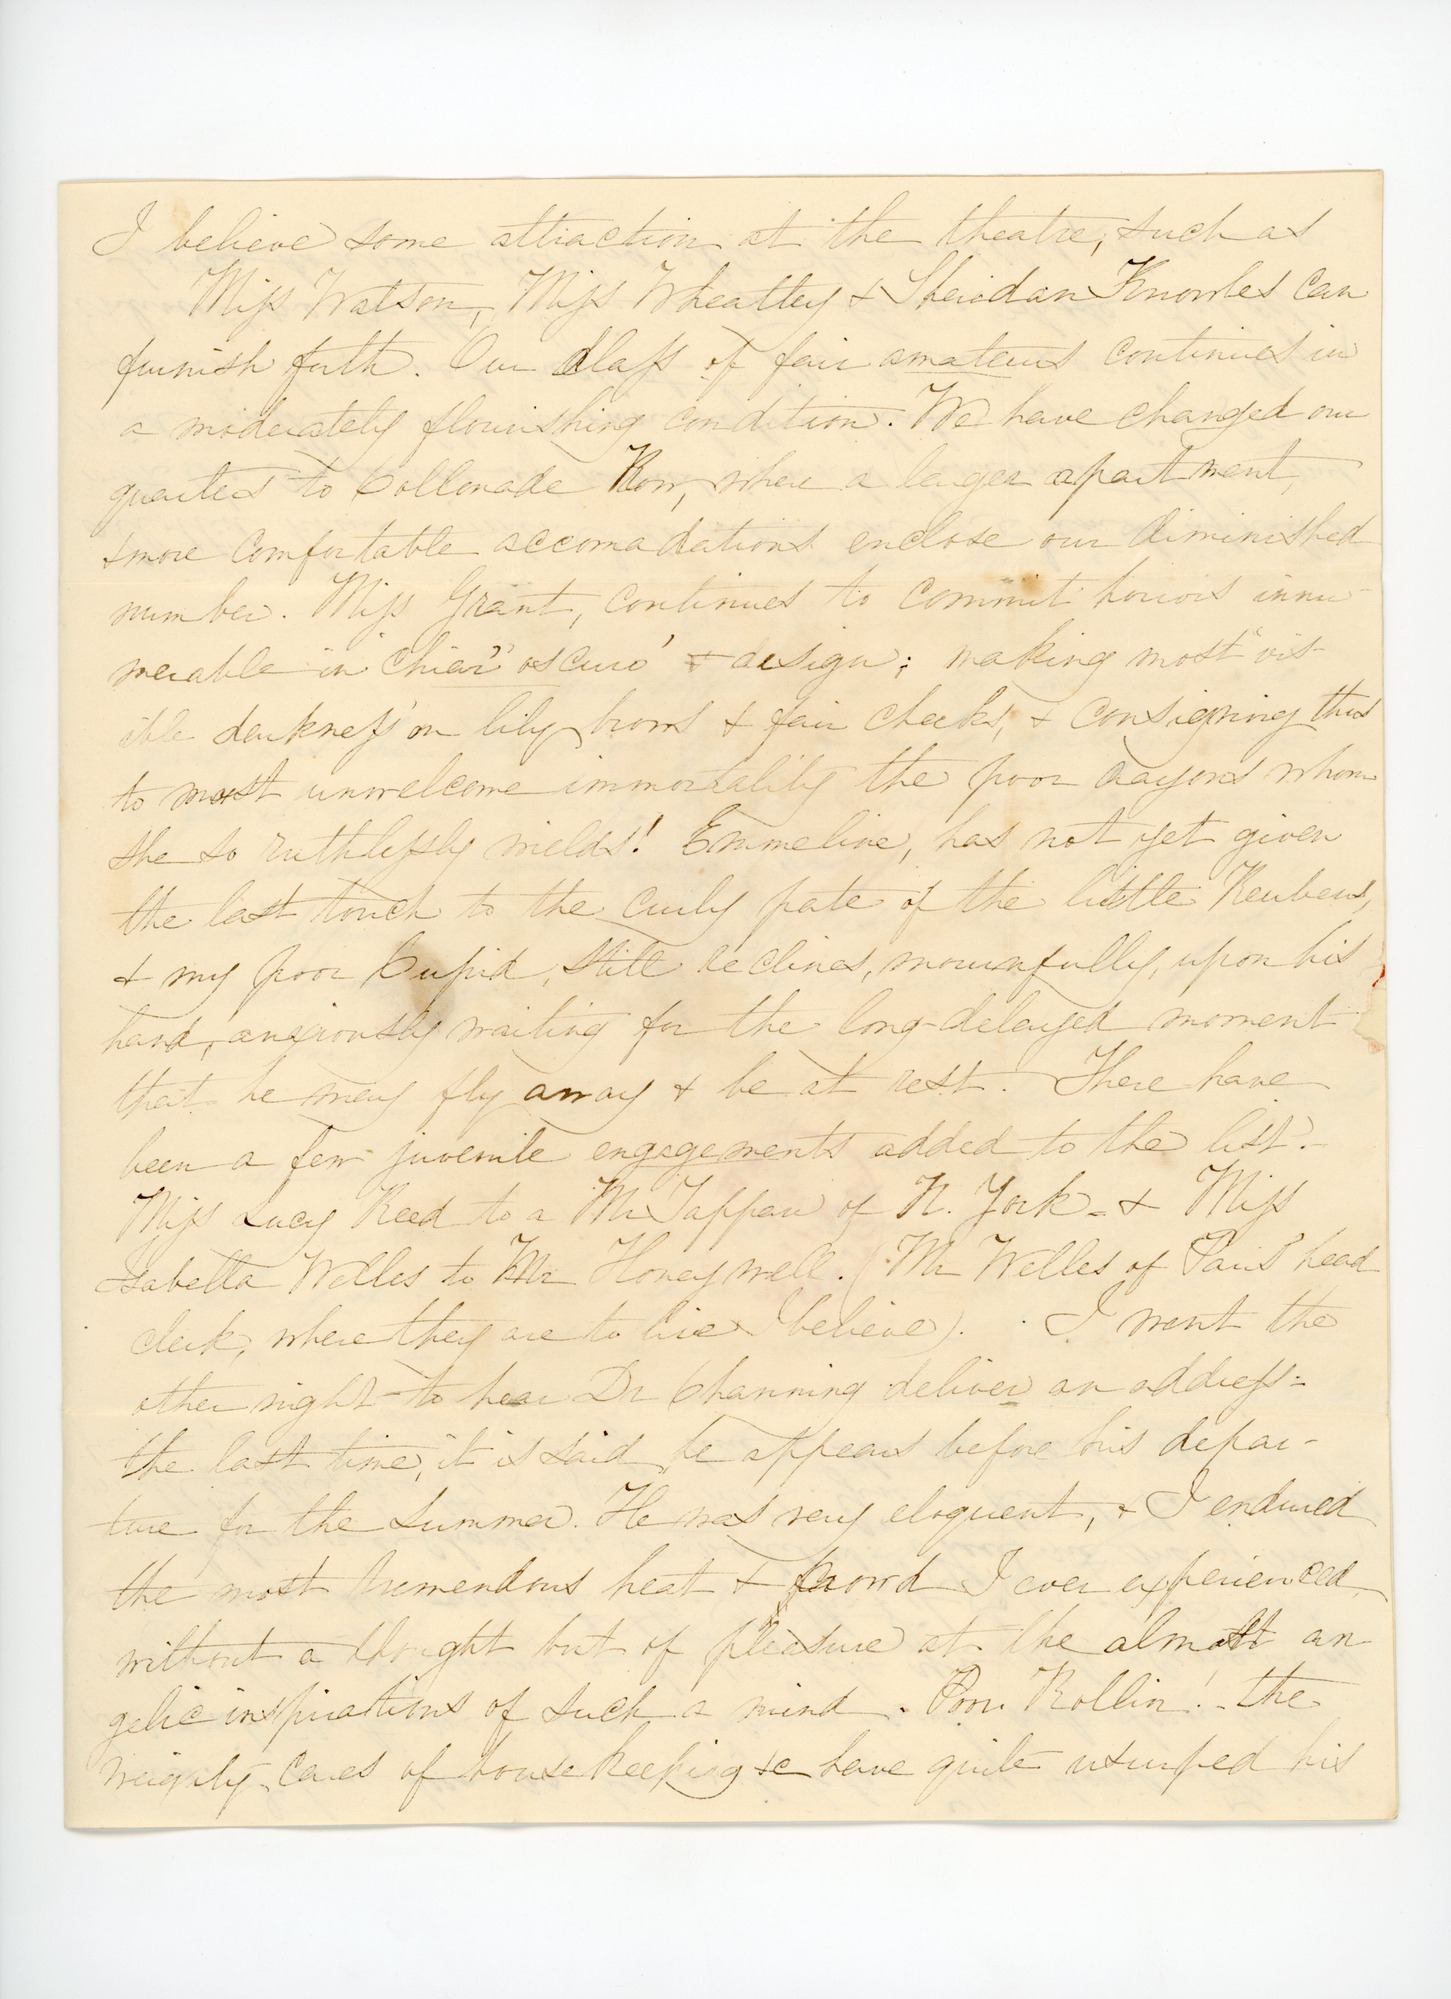 I believe some attraction at the theatre, such as
Miss Watson, Miss Wheatley & Sheridan Knowles can
furnish forth. Our class of fair amateurs continues in
a moderately flourishing condition. We have changed our
quarters to Collonade Row, where a larger apartment,
& more comfortable accomadations enclose our diminished
number. Miss Grant, continues to commit horrors innu-
merable in "chiar' oscuro' & design; making most "vis-
ible darkness" on lily brows & fair cheeks, & consigning thus
to most unwelcome immortality the poor crayons whom
she so ruthlessly wields! Emmeline, has not yet given
the last touch to the curly pate of the little Reubens,
& my poor Cupid, still reclines, mournfully, upon his
hand, anxiously waiting for the long-delayed moment
that he may fly away & be at rest. There have
been a few juvenile engagements added to the list.-
Miss Lucy Reed to a Mr Tappan of N. York - & Miss
Isabella Welles to Mr Honeywell. (Mr Welles of Paris' head
clerk, where they are to live I believe). I went the
other night to hear Dr Channing deliver an address -
the last time, it is said, he appears before his depar-
ture for the summer. He was very eloquent, & I endured
the most tremendous heat & crowd I ever experienced,
without a thought but of pleasure at the almost an
gelic inspirations of such a mind. Poor Rollin! - the
weighty cares of housekeeping &c have quite usurped his